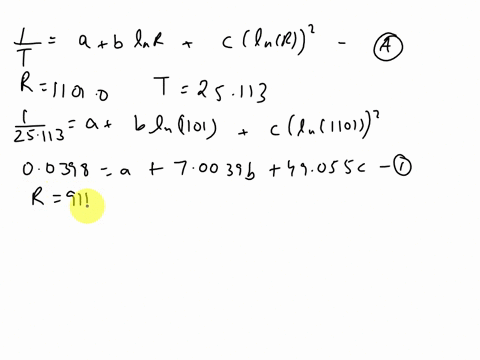 1/T = a + b lnR + c (ln(R))² - Ⓐ
R = 1101.0 T = 25.113
1/25.113 = a + b ln(1101) + c (ln(1101))²
0.0398 = a + 7.0039b + 49.055c - ①
R = 911